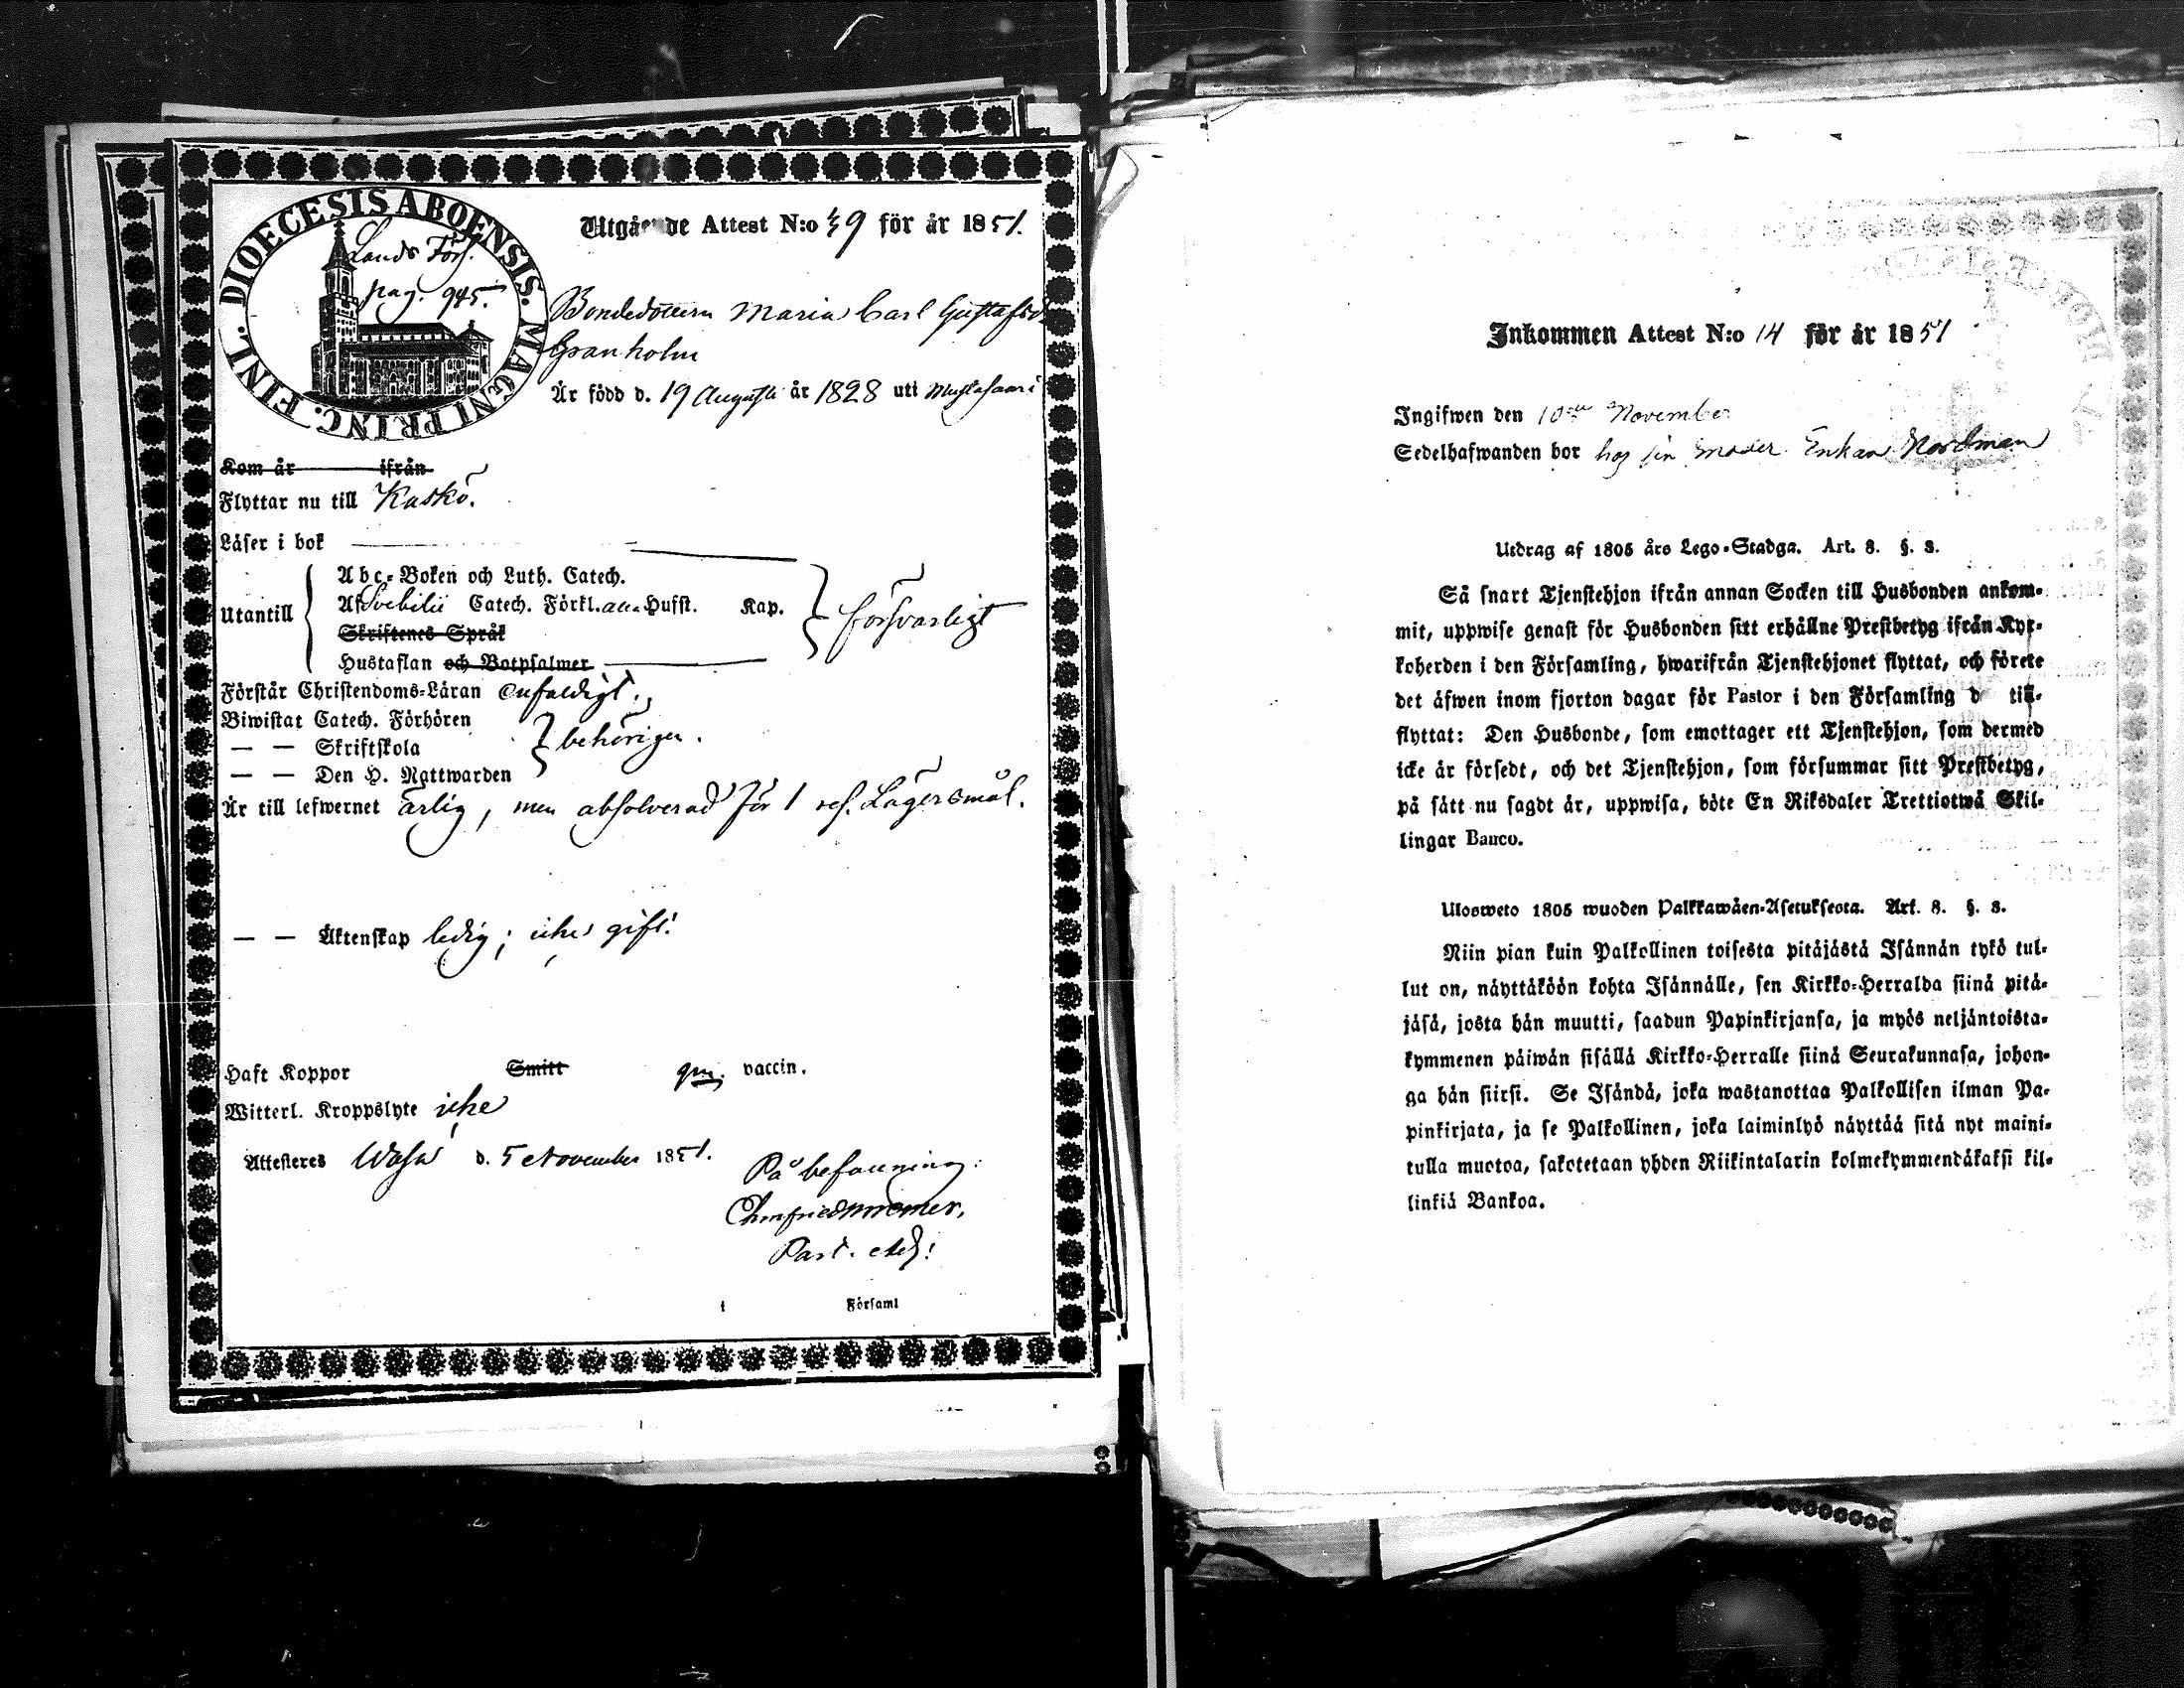 DIOECESIS ABOENSIS. MAGNI PRINC. FINL.
Lands Förs.
pag. 945.
Utgående Attest N:o 39 för år 1851.
Bondedottern Maria Carl Gustafsd.
Granholm
Är född d. 19 Augusti år 1828 uti Mustasaari
Kom år ifrån
Flyttar nu till Kaskö.
Läser i bok
Utantill
Abc-Boken och Luth. Catech.
Af Svebilii Catech. Förkl. Hufst. Kap. försvarligt
Skriftenes Språk
Hustaflan och Botpsalmer
Förstår Christendoms-Läran enfaldigt.
Biwistat Catech. Förhören
— — Skriftskola behörigen.
— — Den H. Nattwarden
Är till lefwernet ärlig, men absolverad för 1 Lägersmål.
— — Äktenskap ledig; icke gift!
Haft Koppor Smitt gm. vaccin.
Witterl. Kroppslyte icke
Attesteres Wasa d. 5 November 1851.
På befallning:
Past. Adj:
i Församl
Inkommen Attest N:o 14 för år 1851
Ingifwen den 10de November
Sedelhafwanden bor hos sin moder Enkan Nordman
Utdrag af 1805 års Lego-Stadga. Art. 8. §. 3.
Så snart Tjenstehjon ifrån annan Socken till Husbonden ankom-
mit, uppwise genast för Husbonden sitt erhållne Prestbetyg ifrån Kyr-
koherden i den Församling, hwarifrån Tjenstehjonet flyttat, och förete
det äfwen inom fjorton dagar för Pastor i den Församling d till-
flyttat: Den Husbonde, som emottager ett Tjenstehjon, som dermed
icke är försedt, och det Tjenstehjon, som försummar sitt Prestbetyg,
på sätt nu sagdt är, uppwisa, böte En Riksdaler Trettiotwå Skil-
lingar Banco.
Ulosweto 1805 wuoden Palkkawäen-Asetuksesta. Art. 8. §. 3.
Niin pian kuin Palkollinen toisesta pitäjästä Isännän tykö tul-
lut on, näyttäköön kohta Isännälle, sen Kirkko-Herralda siinä pitä-
jäsä, josta hän muutti, saadun Papinkirjansa, ja myös neljäntoista-
kymmenen päiwän sisällä Kirkko-Herralle siinä Seurakunnasa, johon-
ga hän siirsi. Se Isändä, joka wastanottaa Palkollisen ilman Pa-
pinkirjata, ja se Palkollinen, joka laiminlyö näyttää sitä nyt maini-
tulla muotoa, sakotetaan yhden Riikintalarin kolmekymmendäkaksi kil-
linkiä Bankoa.